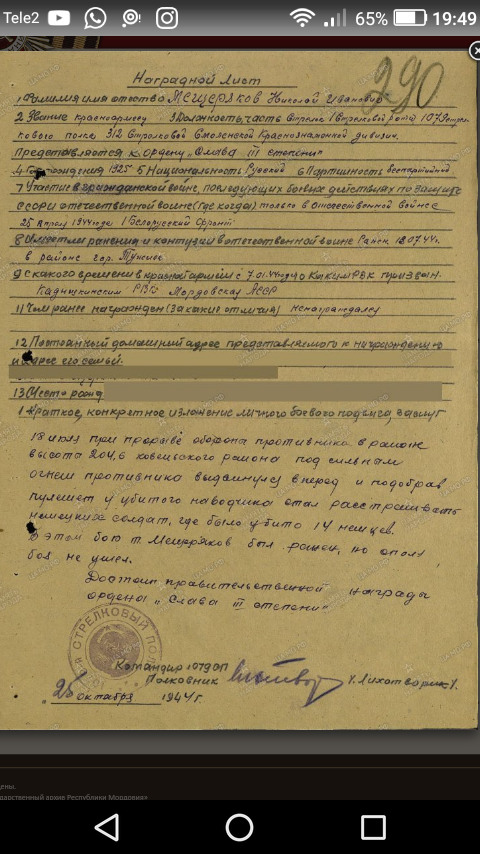 Tele2 65% 19:49
290
Наградной Лист
1 Фамилия имя отчество Мещеряков Николай Иванович
2 Звание красноармеец 3 Должность, часть Стрелок 1 Стрелковой роты 1079 стрел-
кового полка 312 Стрелковой Смоленской Краснознаменной дивизии.
Представляется к ордену „Слава III степени"
4 Год рождения 1925 5 Национальность Русский 6 Партийность беспартийный
7 Участие в гражданской войне, последующих боевых действиях по защите
СССР и отечественной войне (где когда) только в Отечественной войне с
25 апреля 1944 года 1 Белорусский Фронт
8 Имеет ли ранения и контузии в отечественной войне Ранен 18.07.44г.
в районе гор.
9 С какого времени в красной армии с 7.01.44 года 10 Каким РВК призван.
РВК Мордовская АССР
11 Чем ранее награжден (за какие отличия) ненаграждался
12 Постоянный домашний адрес представляемого к награждению
и адрес его семьи.
13 Место
Краткое, конкретное изложение личного боевого подвига, заслуг
18 июля при прорыве обороны противника в районе
высоты 204,6 ковельского района под сильным
огнем противника выдвинулся вперед и подобрав
пулемет у убитого наводчика стал расстреливать
немецких солдат, где было убито 14 немцев.
В этом бою т Мещеряков был ранен, но с поля
боя не ушел.
Достоин правительственной награды
ордена „Слава III степени"
СТРЕЛКОВЫЙ ПОЛК
Командир 1079 СП
Полковник /Лихотворик/.
25 октября 1944 г.
дены.
дарственный архив Республики Мордовия»